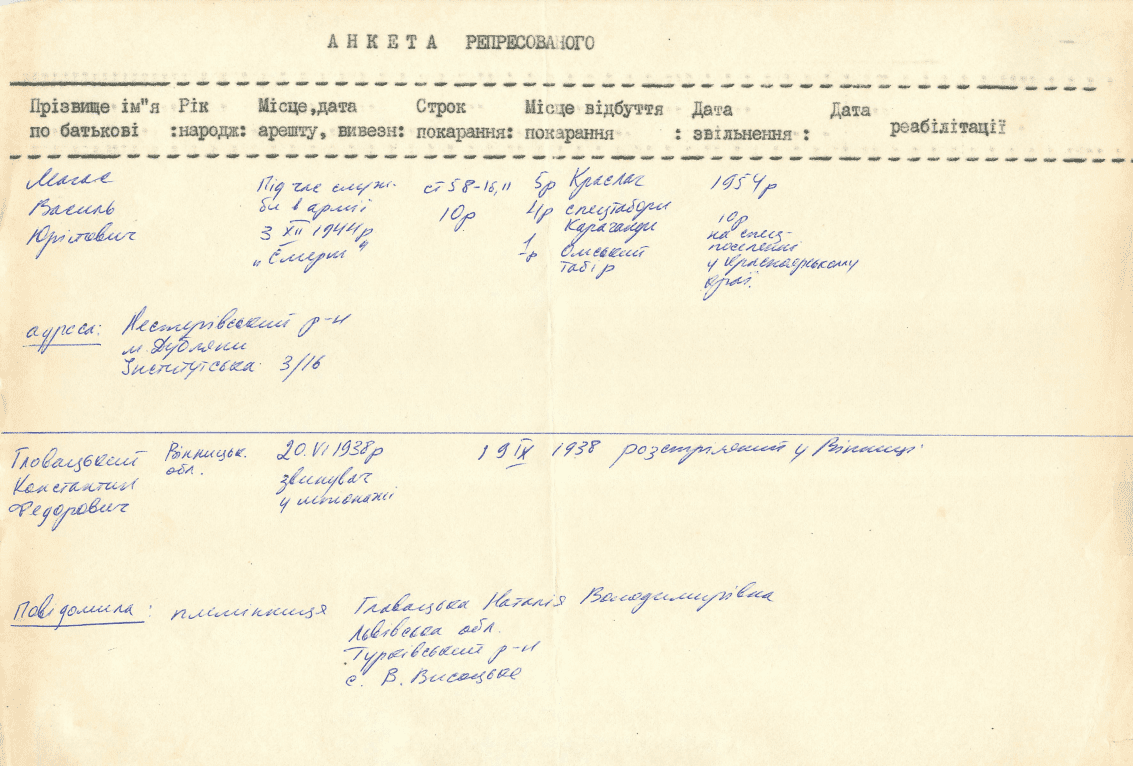 АНКЕТА РЕПРЕСОВАНОГО
Прізвище ім"я Рік Місце,дата Строк Місце відбуття Дата Дата
по батькові :народж: арешту, вивезн: покарання: покарання : звільнення : реабілітації
Василь
Під час служ- ст 58-16,11 5р Краслаг 1954р
би в армії 10р 4р спецтабори
3 XII 1944р Караганди 10р
„Смерш" 1р Омський на спец-
табір поселенні
у Красноярському
краї.
адреса: Нестерівський р-н
м. Дубляни
Інститутська 3/16
Главацький Вінницьк. 20.VI 1938р 19 IX 1938 розстріляний у Вінниці
Константин обл. звинувач
Федорович у шпіонажі
Повідомила: племінниця Главацька Наталія Володимирівна
Львівська обл.
Турківський р-н
с. В. Висоцьке